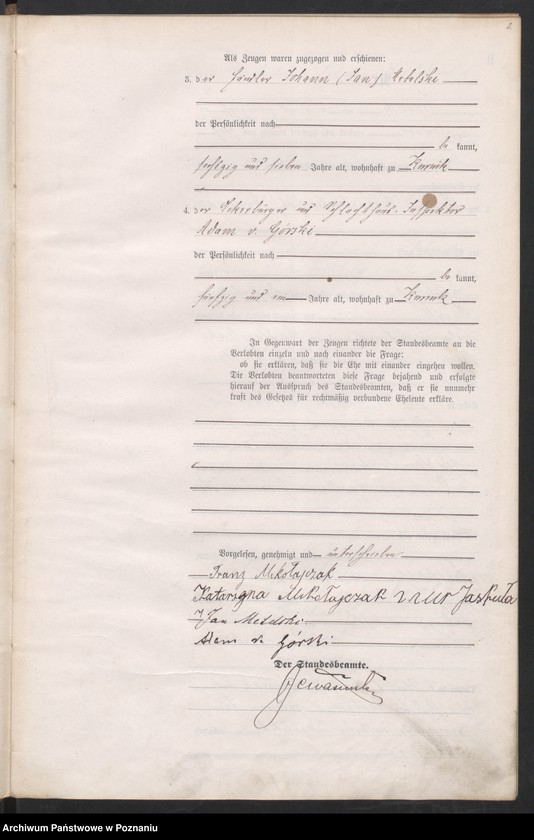 2
Als Zeugen waren zugezogen und erschienen:
3. der Händler Johann (Jan) Metelski
der Persönlichkeit nach
be kannt,
sechzig und sieben Jahre alt, wohnhaft zu Kurnik
4. der Ackerbürger und Schlachthaus-Inspektor
Adam v. Górski
der Persönlichkeit nach
be kannt,
fünfzig und ein Jahre alt, wohnhaft zu Kurnik
In Gegenwart der Zeugen richtete der Standesbeamte an die
Verlobten einzeln und nach einander die Frage:
ob sie erklären, daß sie die Ehe mit einander eingehen wollen.
Die Verlobten beantworteten diese Frage bejahend und erfolgte
hierauf der Ausspruch des Standesbeamten, daß er sie nunmehr
kraft des Gesetzes für rechtmäßig verbundene Eheleute erkläre.
Vorgelesen, genehmigt und unterschrieben
Franz Mikołajczak
Katarzyna Mikołajczak Jaskuła
Jan Metelski
Adam v. Górski
Der Standesbeamte.
Archiwum Państwowe w Poznaniu